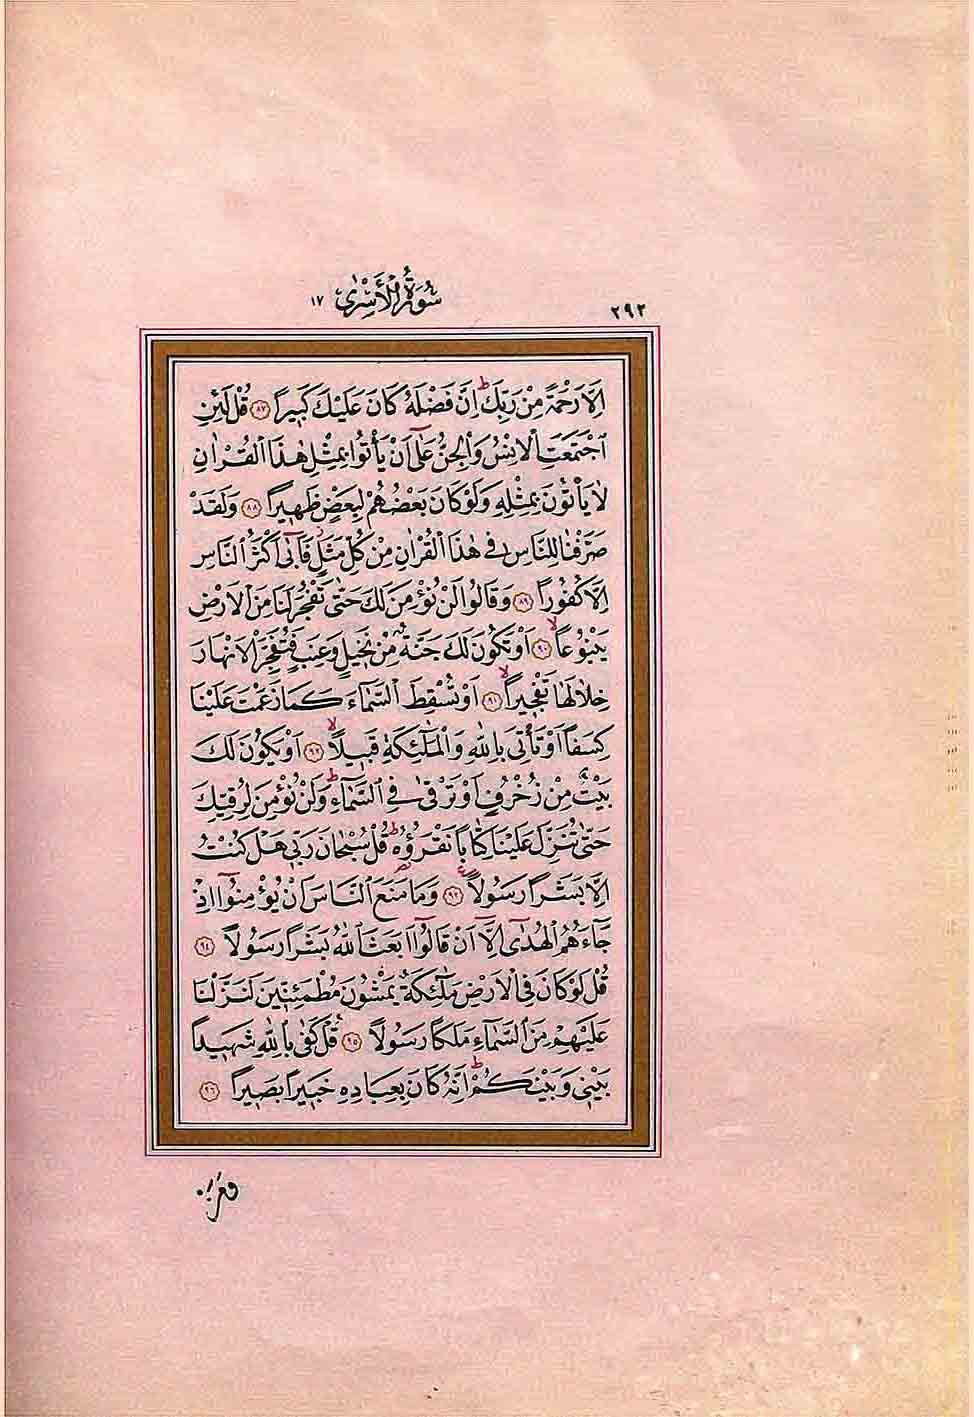 ٢٩٢ سُورَةُ الْأَسْرٰى ١٧
اِلَّا رَحْمَةً مِنْ رَبِّكَۜ اِنَّ فَضْلَهُ كَانَ عَلَيْكَ كَبٖيراً ﴿٨٧﴾ قُلْ لَئِنِ
اجْتَمَعَتِ الْاِنْسُ وَالْجِنُّ عَلٰٓى اَنْ يَأْتُوا بِمِثْلِ هٰذَا الْقُرْاٰنِ
لَا يَأْتُونَ بِمِثْلِهٖ وَلَوْ كَانَ بَعْضُهُمْ لِبَعْضٍ ظَهٖيراً ﴿٨٨﴾ وَلَقَدْ
صَرَّفْنَا لِلنَّاسِ فٖي هٰذَا الْقُرْاٰنِ مِنْ كُلِّ مَثَلٍۘ فَاَبٰٓى اَكْثَرُ النَّاسِ
اِلَّا كُفُوراً ﴿٨٩﴾ وَقَالُوا لَنْ نُؤْمِنَ لَكَ حَتّٰى تَفْجُرَ لَنَا مِنَ الْاَرْضِ
يَنْبُوعاًۙ ﴿٩٠﴾ اَوْ تَكُونَ لَكَ جَنَّةٌ مِنْ نَخٖيلٍ وَعِنَبٍ فَتُفَجِّرَ الْاَنْهَارَ
خِلَالَهَا تَفْجٖيراًۙ ﴿٩١﴾ اَوْ تُسْقِطَ السَّمَٓاءَ كَمَا زَعَمْتَ عَلَيْنَا
كِسَفاً اَوْ تَأْتِيَ بِاللّٰهِ وَالْمَلٰٓئِكَةِ قَبٖيلاًۙ ﴿٩٢﴾ اَوْ يَكُونَ لَكَ
بَيْتٌ مِنْ زُخْرُفٍ اَوْ تَرْقٰى فِي السَّمَٓاءِۜ وَلَنْ نُؤْمِنَ لِرُقِيِّكَ
حَتّٰى تُنَزِّلَ عَلَيْنَا كِتَاباً نَقْرَؤُ۬هُۜ قُلْ سُبْحَانَ رَبّٖي هَلْ كُنْتُ
اِلَّا بَشَراً رَسُولاًࣖ ﴿٩٣﴾ وَمَا مَنَعَ النَّاسَ اَنْ يُؤْمِنُٓوا اِذْ
جَٓاءَهُمُ الْهُدٰٓى اِلَّٓا اَنْ قَالُٓوا اَبَعَثَ اللّٰهُ بَشَراً رَسُولاً ﴿٩٤﴾
قُلْ لَوْ كَانَ فِي الْاَرْضِ مَلٰٓئِكَةٌ يَمْشُونَ مُطْمَئِنّٖينَ لَنَزَّلْنَا
عَلَيْهِمْ مِنَ السَّمَٓاءِ مَلَكاً رَسُولاً ﴿٩٥﴾ قُلْ كَفٰى بِاللّٰهِ شَهٖيداً
بَيْنٖي وَبَيْنَكُمْۜ اِنَّهُ كَانَ بِعِبَادِهٖ خَبٖيراً بَصٖيراً ﴿٩٦﴾